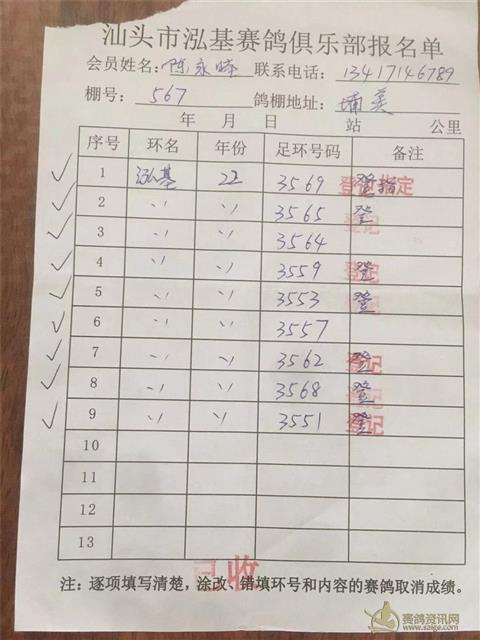 汕头市泓基赛鸽俱乐部报名单
会员姓名: 陈永 联系电话: 13417146789
棚号: 567 鸽棚地址: 埔美
年 月 日 站 公里
序号 环名 年份 足环号码 备注
1 泓基 22 3569 登指 登记指定
2 〃 〃 3565 登 登记
3 〃 〃 3564
4 〃 〃 3559 登 登记
5 〃 〃 3553 登 登记
6 〃 〃 3557
7 〃 〃 3562 登 登记
8 〃 〃 3568 登 登记
9 〃 〃 3551 登 登记
10
11
12
13
已收
注: 逐项填写清楚，涂改、错填环号和内容的赛鸽取消成绩。
赛鸽资讯网
www.saige.com